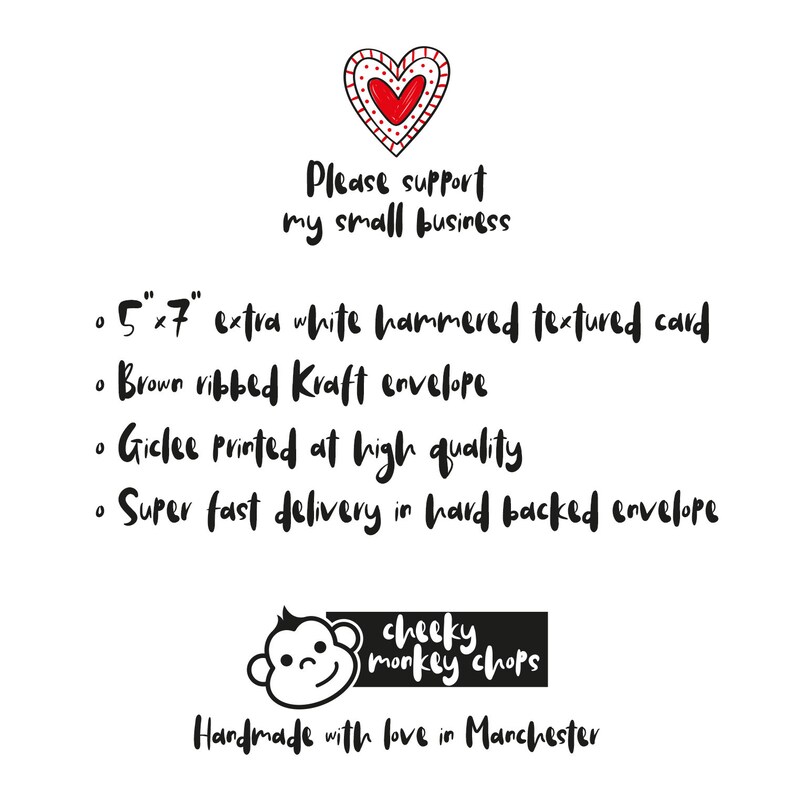 Please support
my small business
o 5"x7" extra white hammered textured card
o Brown ribbed Kraft envelope
o Giclee printed at high quality
o Super fast delivery in hard backed envelope
cheeky
monkey chops
Handmade with love in Manchester